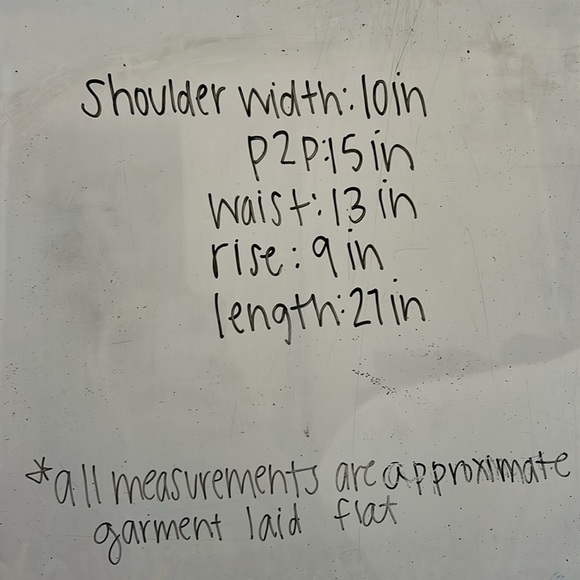 Shoulder width: 10in
P2P: 15 in
waist: 13 in
rise: 9 in
length: 27 in
*all measurements are approximate
garment laid flat